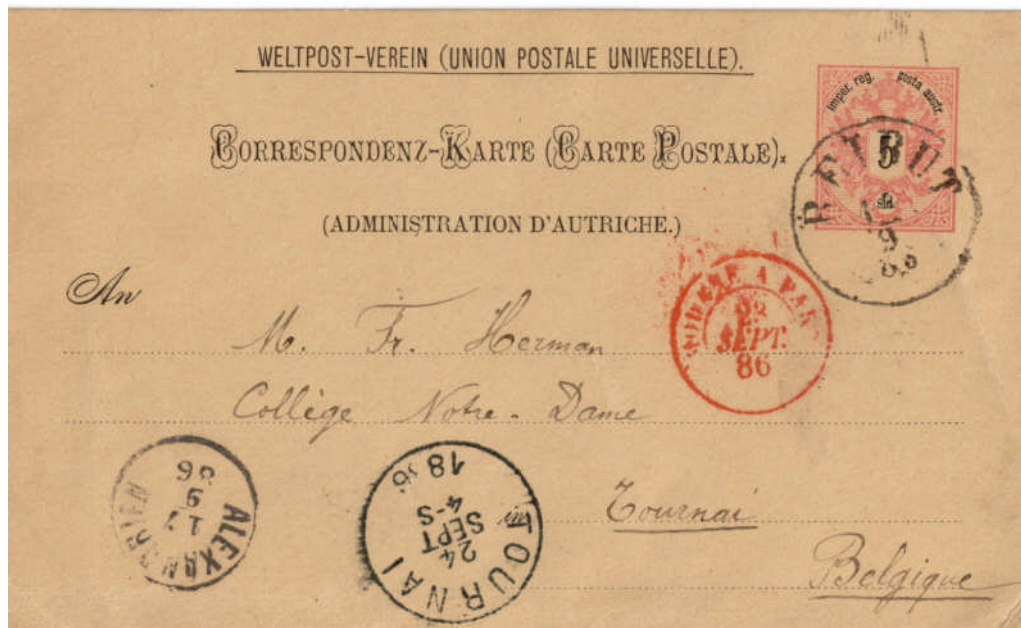 WELTPOST-VEREIN (UNION POSTALE UNIVERSELLE).
CORRESPONDENZ-KARTE (CARTE POSTALE).
(ADMINISTRATION D'AUTRICHE.)
imper. reg. posta austr.
5
sld
BEIRUT
9
An
MODANE A PAR
23
SEPT.
86
M. Fr. Herman
Collège Notre-Dame
in Tournai
Belgique
ALEXANDRIEN
17
9
86
TOURNAI
24
SEPT
4-S
1886